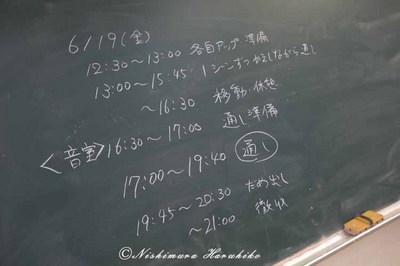 6/19(金)
12:30～13:00 各自アップ・準備
13:00～15:45 1シーンずつ返しながら通し
～16:30 移動・休憩
<音室> 16:30～17:00 通し準備
17:00～19:40 通し
19:45～20:30 だめ出し
～21:00 撤収
©Nishimura Haruhiko